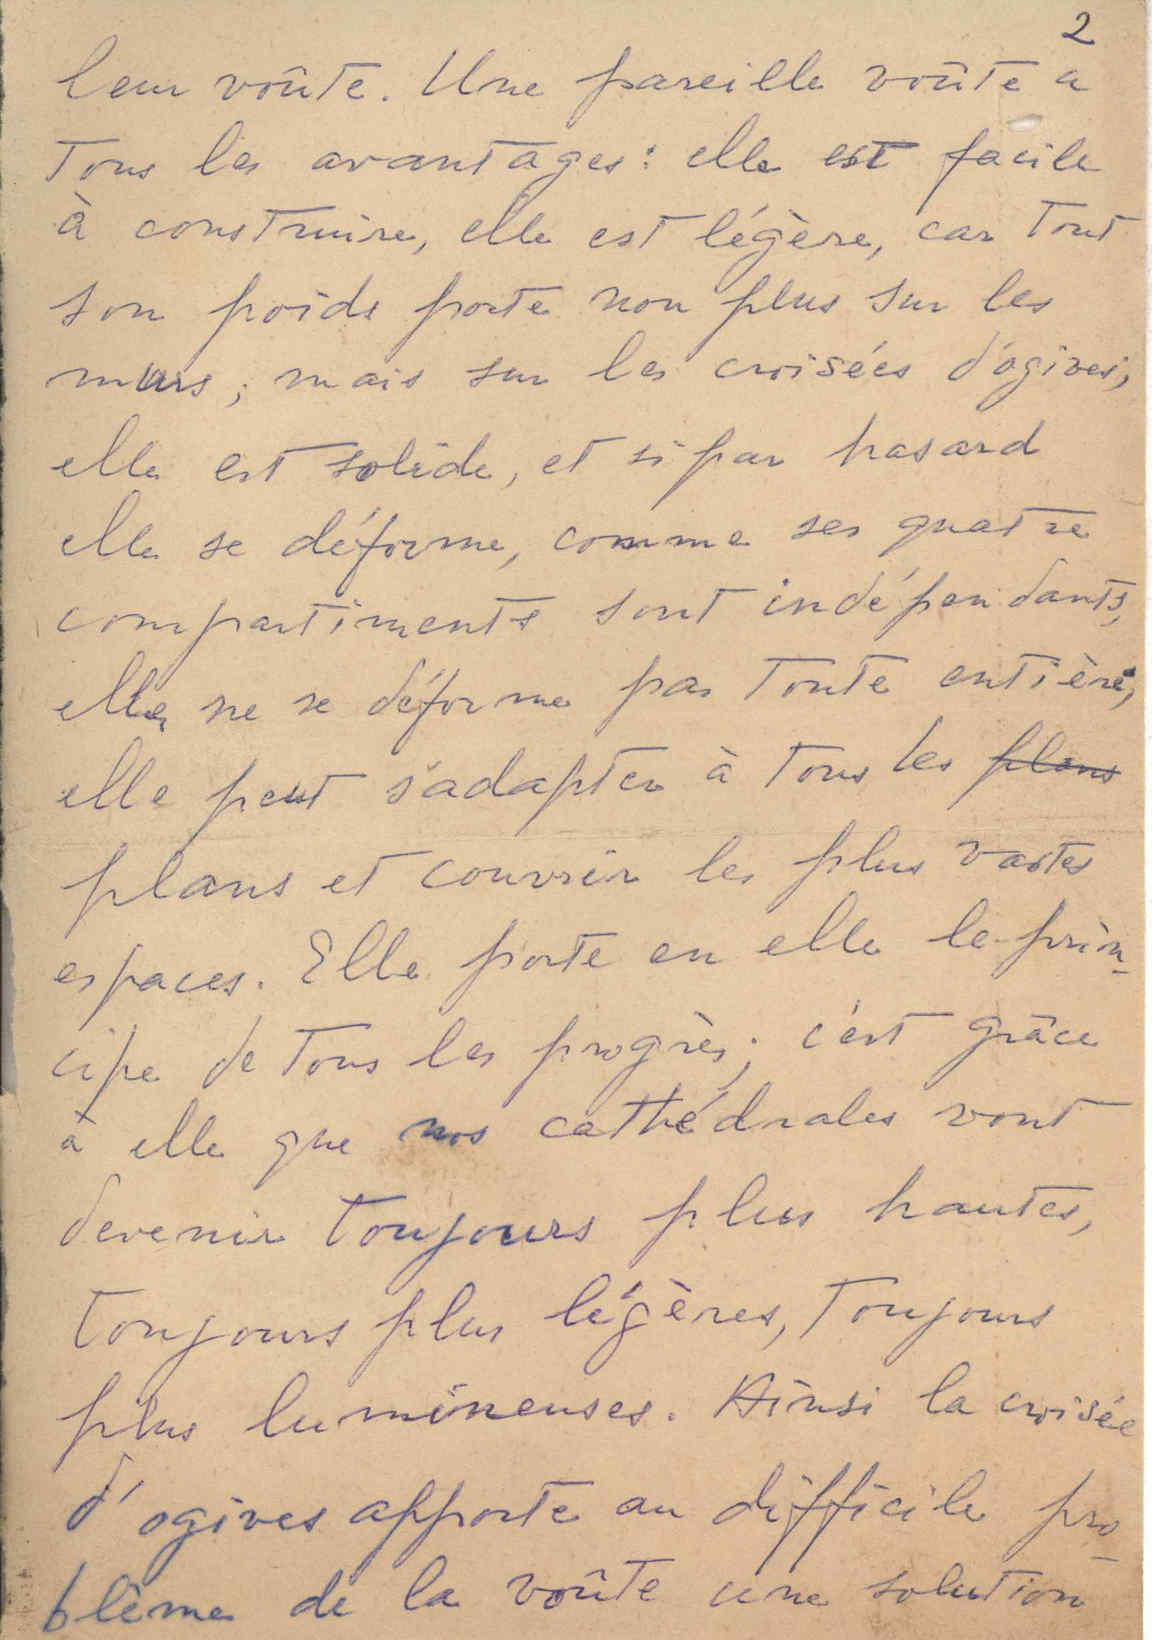 2
leur voûte. Une pareille voûte a
tous les avantages : elle est facile
à construire, elle est légère, car tout
son poids porte non plus sur les
murs, mais sur les croisées d'ogives,
elle est solide, et si par hasard
elle se déforme, comme ses quatre
compartiments sont indépendants,
elle ne se déforme pas toute entière,
elle peut s'adapter à tous les plans
plans et couvrir les plus vastes
espaces. Elle porte en elle le prin-
cipe de tous les progrès ; c'est grâce
à elle que nos cathédrales vont
devenir toujours plus hautes,
toujours plus légères, toujours
plus lumineuses. Ainsi la croisée
d'ogives apporte au difficile pro-
blême de la voûte une solution